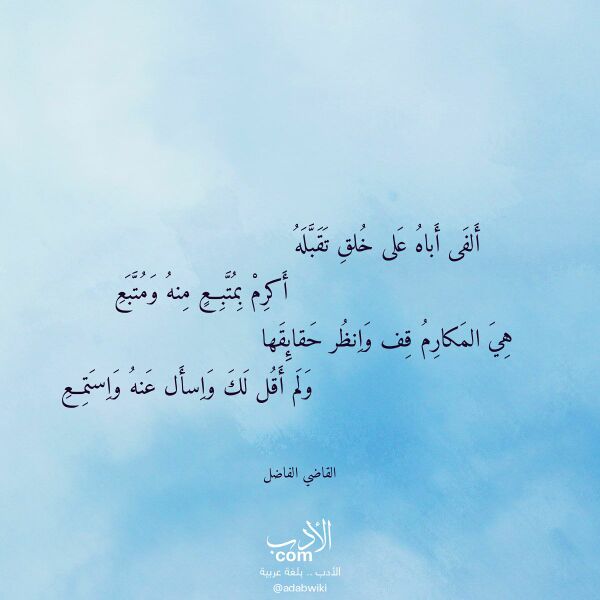 أَلفَى أَباهُ عَلى خُلقِ تَقَبَّلَهُ
أَكرِمْ بِمُتَّبِعٍ مِنهُ وَمُتَّبَعِ
هِيَ المَكارِمُ قِف وَاِنظُر حَقايِقَها
وَلَم أَقُل لَكَ وَاِسأَل عَنهُ وَاِستَمِعِ
القاضي الفاضل
الأدب
com
الأدب .. بلغة عربية
@adabwiki